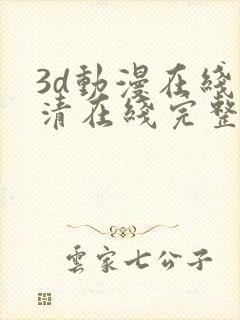 3d動漫在綫
清在綫完整
雲家七公子